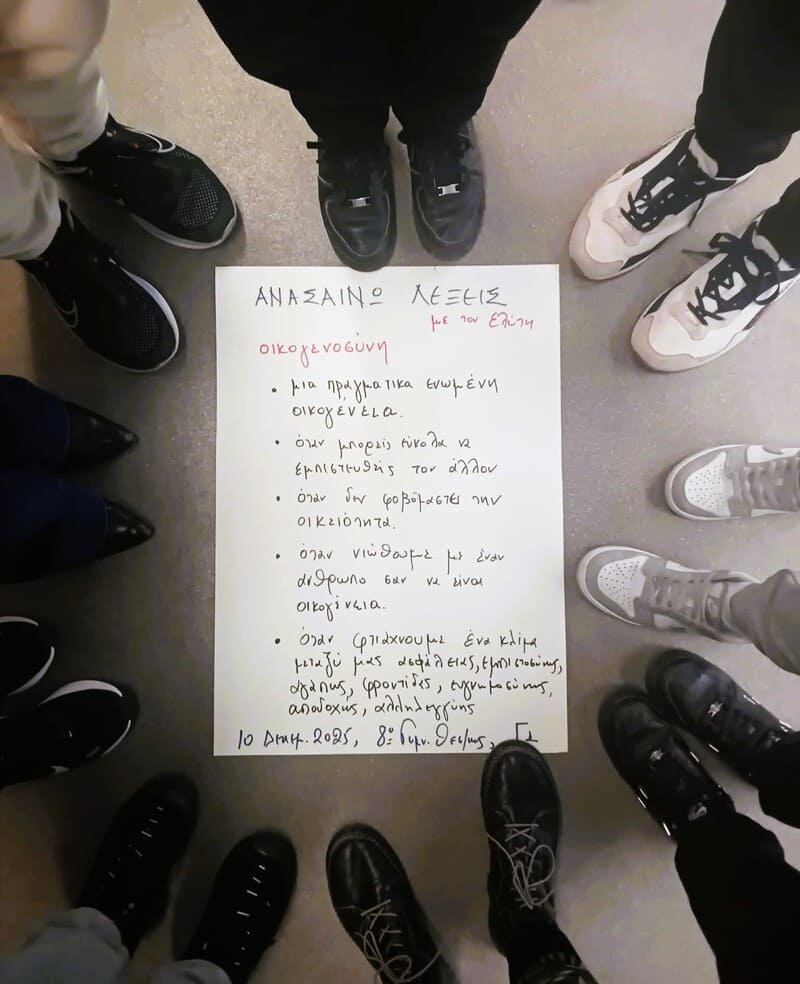 ΑΝΑΣΑΙΝΩ ΛΕΞΕΙΣ
με τον Ελύτη
οικογενοσύνη
• μια πραγματικα ενωμένη
οικογένεια.
• όταν μπορείς εύκολα να
εμπιστευθείς τον άλλον
• όταν δεν φοβόμαστε την
οικειότητα.
• όταν νιώθουμε με έναν
άνθρωπο σαν να είναι
οικογένεια.
• όταν φτιάχνουμε ένα κλίμα
μεταξύ μας ασφάλειας, εμπιστοσύνης,
αγάπης, φροντίδες, ευγνωμοσύνης,
αποδοχής, αλληλεγγύης
10 Δεκεμ. 2025, 8ο Γυμν. Θεσ/κης, Γ1